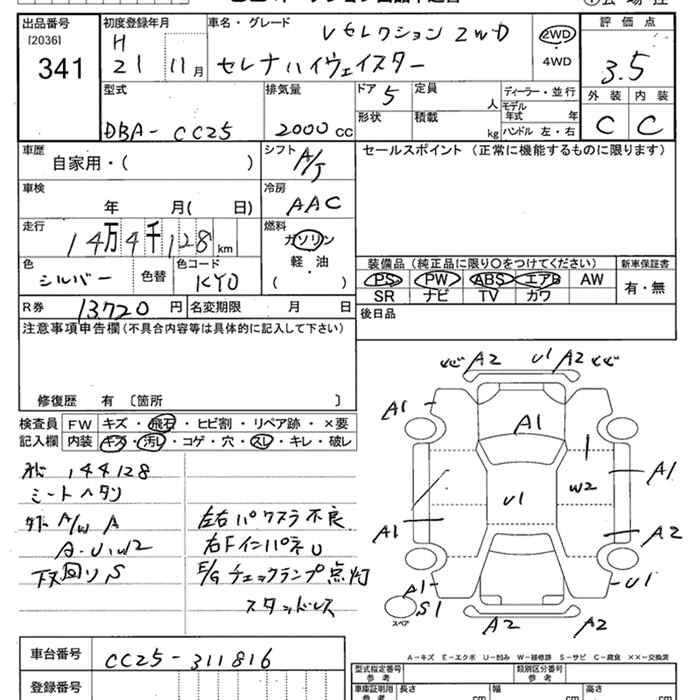 出品番号
[2036]
341
初度登録年月
H
21 11月
車名・グレード
Vセレクション 2WD
セレナハイウェイスター
2WD
・
4WD
評価点
3.5
外装 内装
C C
型式
DBA- CC25
排気量
2000 cc
ドア
5
定員
人
形状
積載
kg
ディーラー・並行
モデル
年式 年
ハンドル 左・右
車歴
自家用・( )
シフト
A/T
セールスポイント (正常に機能するものに限ります)
車検
年 月( 日)
冷房
AAC
走行
14万4千128km
燃料
ガソリン
・
軽油
( )
色
シルバー
色替
色コード
KY0
装備品 (純正品に限り○をつけてください)
新車保証書
PS PW ABS エアB AW
SR ナビ TV カワ
有・無
R券 13720円
名変期限 月 日
後日品
注意事項申告欄 (不具合内容等は具体的に記入して下さい)
修復歴 有 〔箇所 〕
検査員
記入欄
FW キズ・飛石・ヒビ割・リペア跡・×要
内装 キズ・汚レ・コゲ・穴・スレ・キレ・破レ
144128
シートヘタリ
外 A/W A
A・U・W2
下回リ S
左右パワスラ不良
右FインパネU
E/G チェックランプ点灯
スタッドレス
A2 U1 A2
A1 A1
A1
U1 W2
A1 A2
A1 U1
S1
スペア
A2 A2
A-キズ E-エクボ U-凹み W-補修跡 S-サビ C-腐食 ××-交換済
車台番号
CC25-311816
登録番号
型式指定番号
参考
類別区分番号
参考
車庫証明用
参考
長さ cm
幅 cm
高さ cm